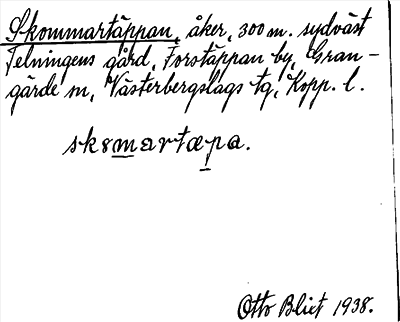 Skommartäppan, åker, 300 m. sydväst
Telningens gård, Forstäppan by, Gran-
gärde sn, Västerbergslags tg, Kopp. l.
skomartæpa.
Otto Blixt 1938.